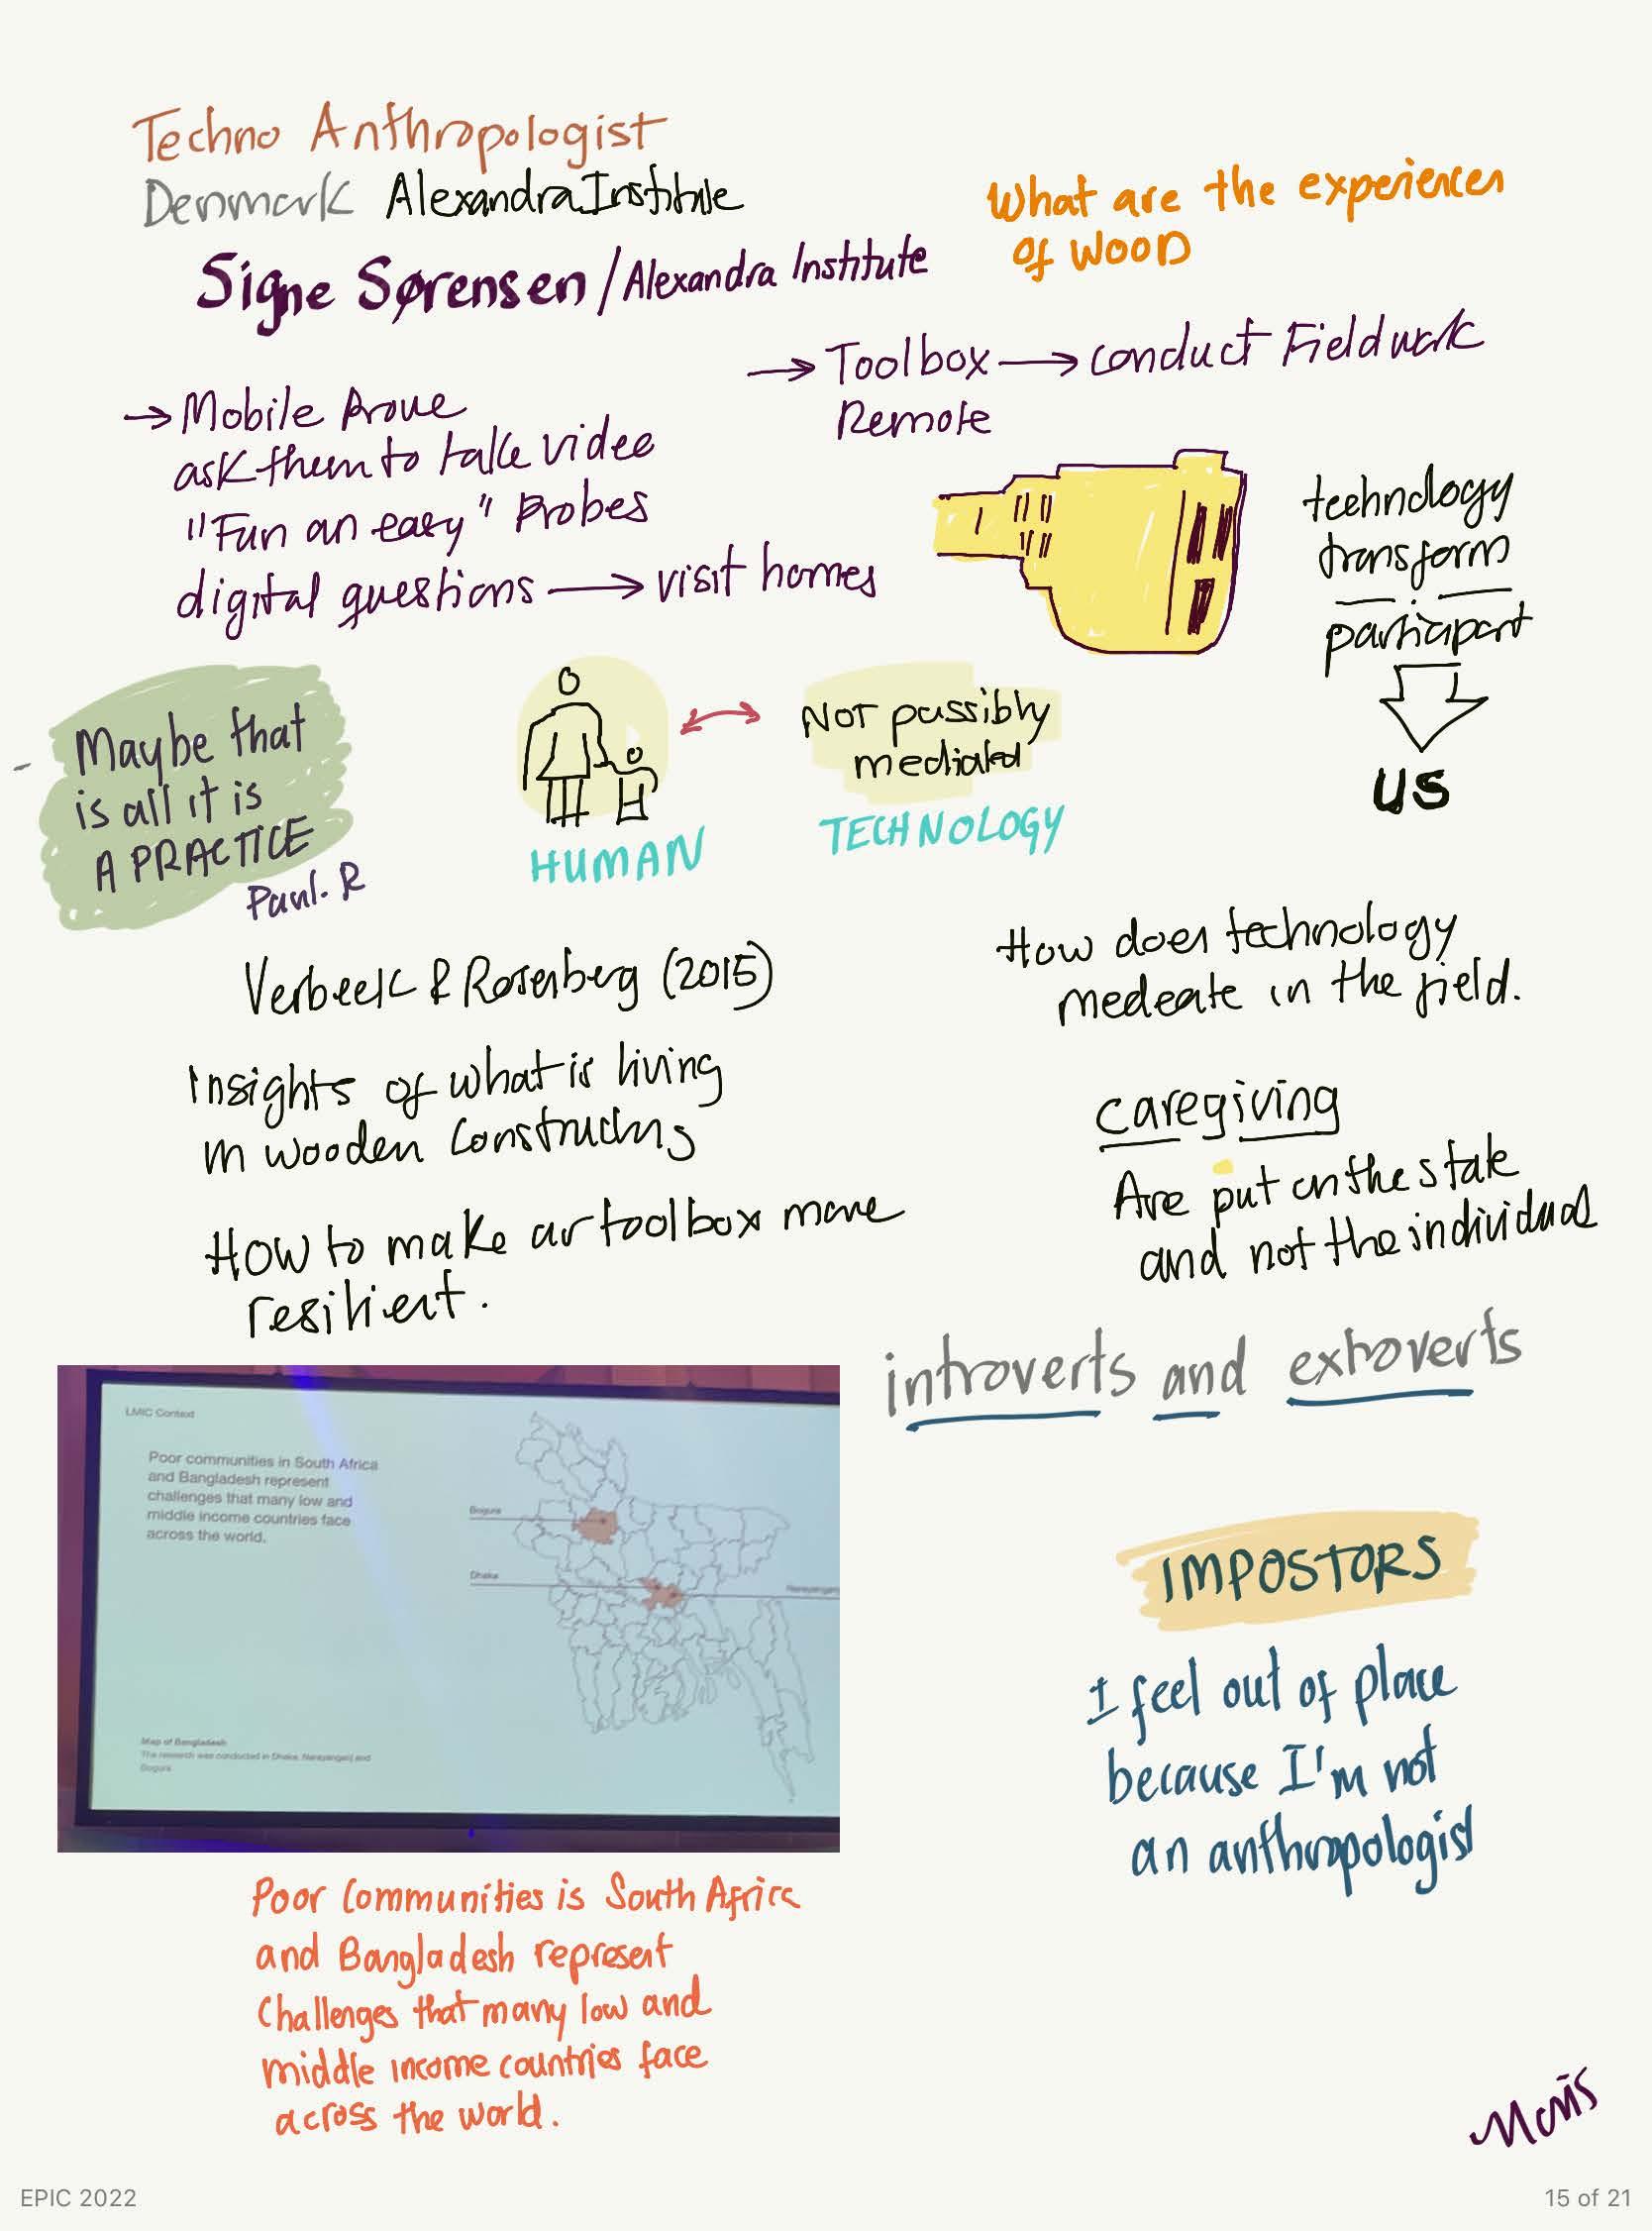 Techno Anthropologist
Denmark Alexandra Institute
Signe Sørensen / Alexandra Institute
What are the experiences
of WOOD
→ Toolbox → conduct Fieldwork
Remote
→ Mobile Probe
ask them to take video
"Fun an easy" Probes
digital questions → visit homes
technology
transform
participant
US
Maybe that
is all it is
A PRACTICE
Paul. R
HUMAN
NOT possibly
mediated
TECHNOLOGY
Verbeek & Rosenberg (2015)
Insights of what is living
in wooden constructions
How to make our toolbox more
resilient.
How does technology
medeate in the field.
caregiving
Are put on the stake
and not the individual
introverts and extroverts
LMIC Context
Poor communities in South Africa
and Bangladesh represent
challenges that many low and
middle income countries face
across the world.
Bogura
Dhaka
Narayanganj
Map of Bangladesh
The research was conducted in Dhaka, Narayanganj and
Bogura
IMPOSTORS
I feel out of place
because I'm not
an anthropologist
Poor Communities is South Africa
and Bangladesh represent
Challenges that many low and
middle income countries face
across the world.
EPIC 2022
15 of 21